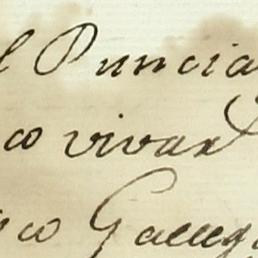 l Puncia
co vivar
co Galleg